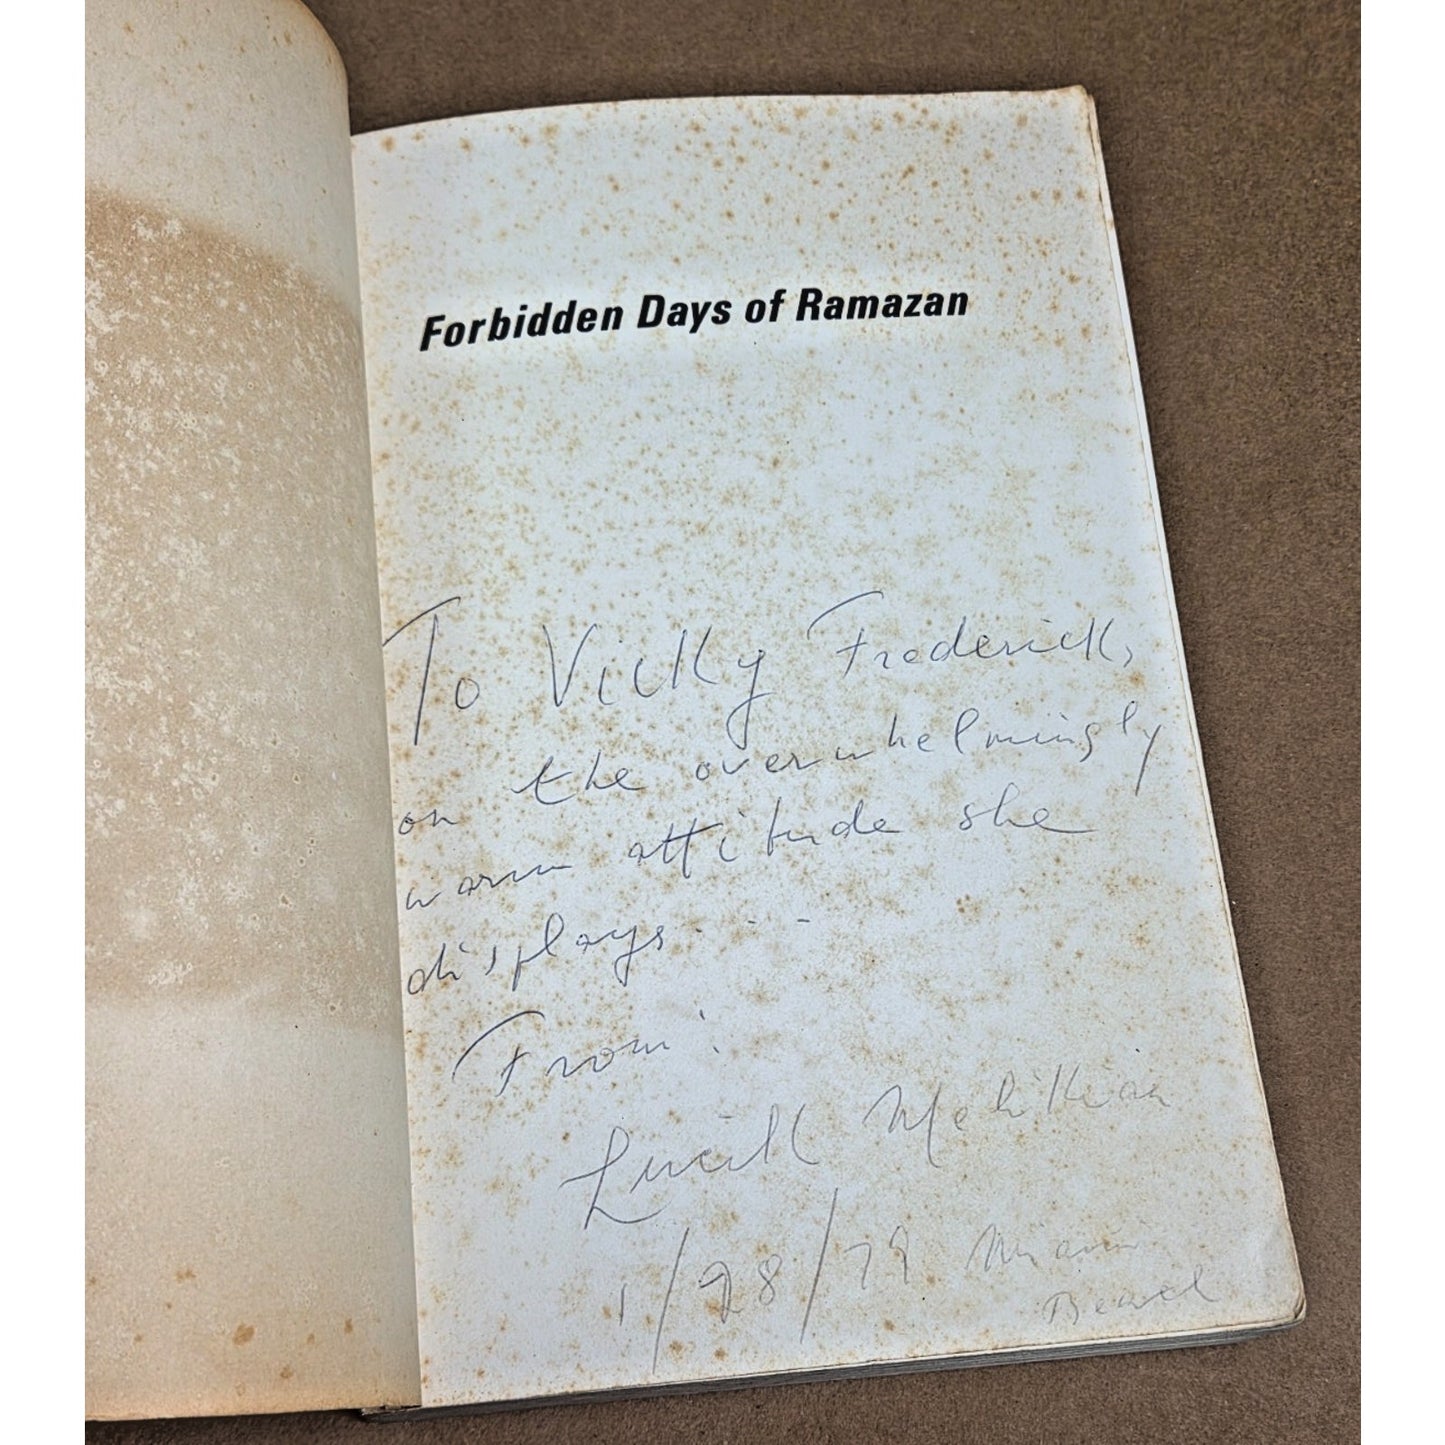 Forbidden Days of Ramazan
To Vicky Frederick,
on the overwhelmingly
warm attitude she
displays. . . .
From:
Lucill Melikian
1/28/79 Miami
Beach